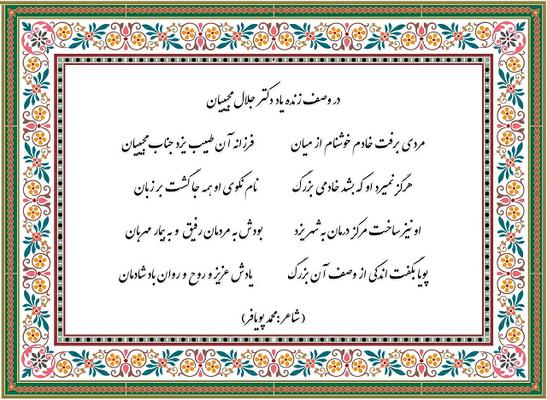 در وصف زنده یاد دکتر جلال مجیبیان
مردی برفت خادم خوشنام از میان فرزانه آن طبیب یزد جناب مجیبیان
هرگز نمیرد او که بشد خادمی بزرگ نام نکوی او همه جا گشت بر زبان
او نیز ساخت مرکز درمان به شهر یزد بودش به مردمان رفیق و به بیمار مهربان
پویا بگفت اندکی از وصف آن بزرگ یادش عزیز و روح و روان باد شادمان
(شاعر: محمد پویافر)